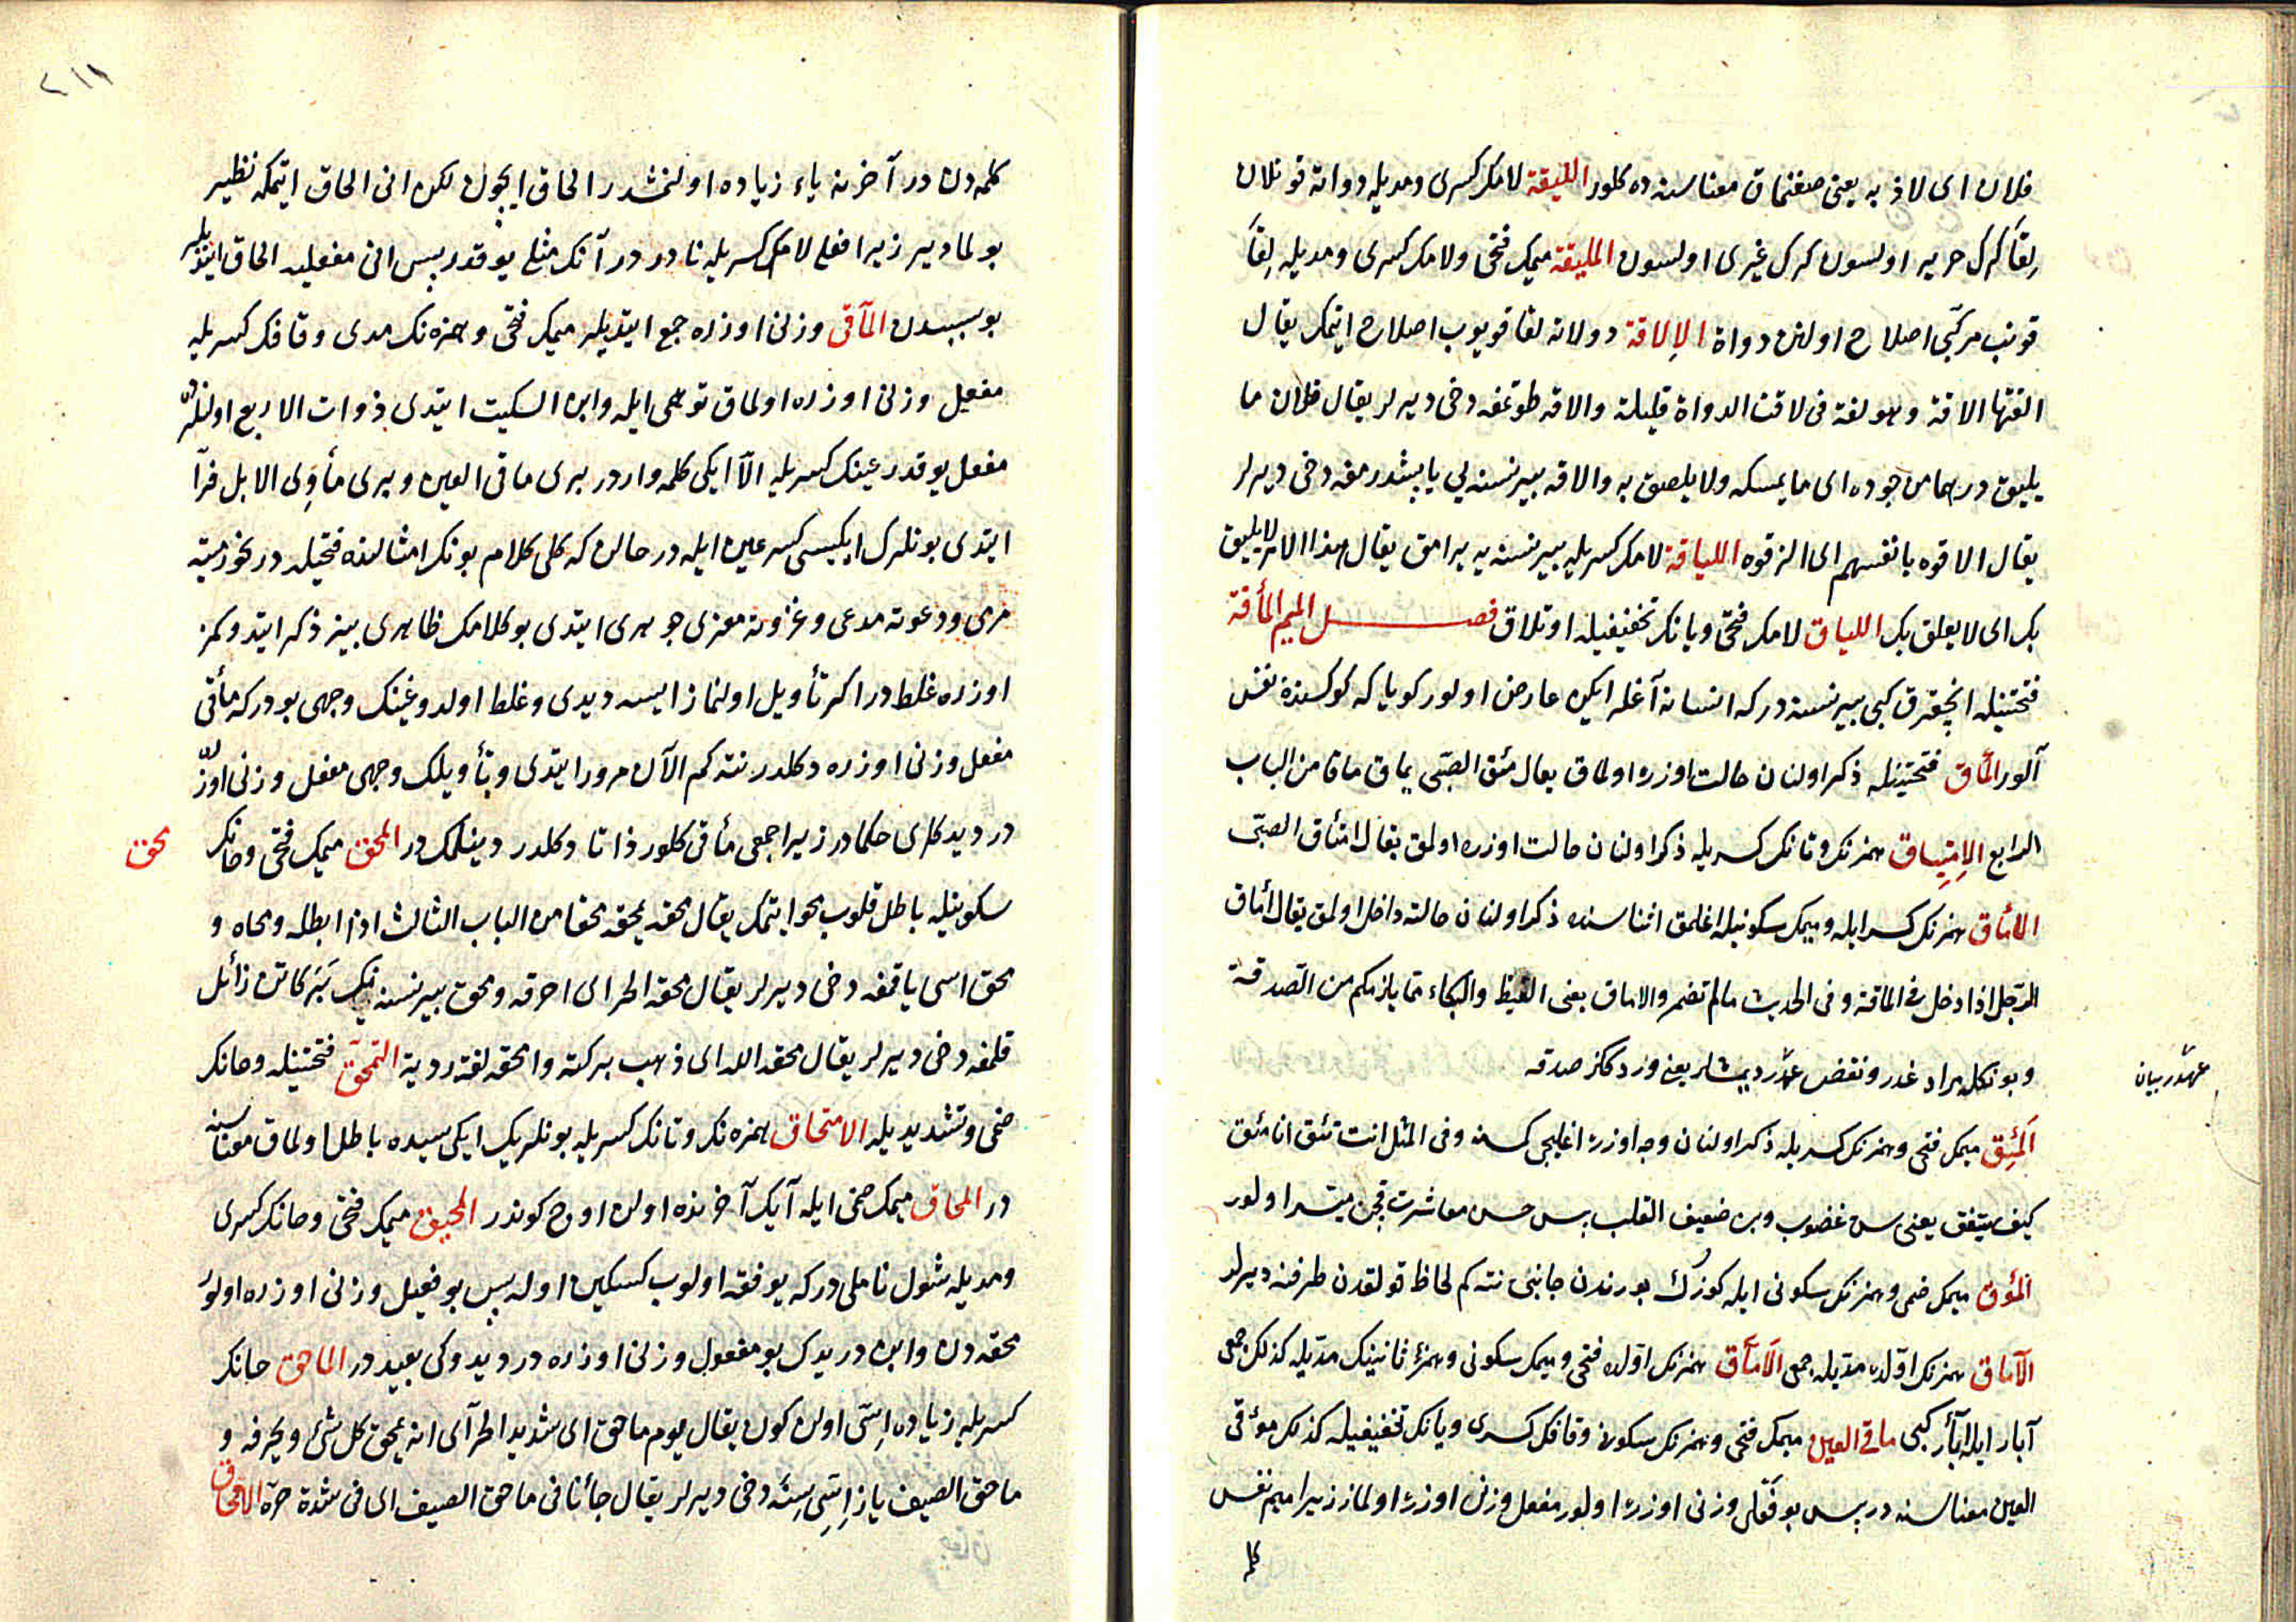 فلان ای لاذ به یعنی صغنماق معناسنه ده کلور اللیقة لامک کسری و مدیله دواته قونلان
لِقا کرک حریر اولسون کرک غیری اولسون الملیقة میمک فتحی ولامک کسری ومدیله لِقا
قونب مرکبی اصلاح اولنن دواة الإلاقة دولاته لقا قویوب اصلاح ایتمک یقال
القتها الاقة وهو لغة فی لاقت الدواة قلیلة والاقه طوتمغه دخی دیرلر یقال فلان ما
یلیق درهما من جوده ای ما یمسکه ولا یلصق به والاقه بیر نسنه یی یاپشدرمغه دخی دیرلر
یقال الاقوه بانفسهم ای الزقوه اللیاقة لامک کسریله بیر نسنه یه یرامق یقال هذا الامر لا یلیق
بک ای لا یعلق بک اللیاق لامک فتحی ویانک تخفیفیله اوتلاق فصل المیم المأقة
فتحتینله انچقرق کبی بیر نسنه در که انسانه آغلر ایکن عارض اولور کویا که کوکسنده نفس
آلور المأق فتحتینله ذکر اولنان حالت اوزره اولماق یقال مئق الصبّی یماق ماقا من الباب
الرابع الإمتیاق همزنک وتانک کسریله ذکر اولنان حالت اوزره اولمق یقال امتأق الصبّی
الامٔاق همزنک کسرایله ومیمک سکونیله اغلمق اثناسنده ذکر اولنان حالته داخل اولمق یقال امٔاق
الرّجل اذا دخل فی الماقة وفی الحدیث مالم تضمر والاماق یعنی الغیظ والبکاء ممّا یلزمکم من الصّدقة
وبونکله مراد غدر ونقض عهّدر دیمشلر یعنی
عهّدر بیان
اَلمَئِق میمک فتحی وهمزنک کسریله ذکر اولنان وجه اوزره اغلیجی کسنه وفی المثل انت تئق انا مئق
کیف نتفق یعنی سن غضوب وبن ضعیف القلب پس حسن معاشرت قچن میسّر اولور
اَلمؤق میمک ضمی وهمزنک سکونی ایله کوزک بورندن جانبی نته کم لحاظ قولقدن طرفنه دیرلر
الآماق همزنک اوّلده مدّیله جمعی الأمآق همزنک اوّلده فتحی ومیمک سکونی وهمزۀ ثانینک مدّیله کذلک جمعی
آبار ایله ابآر کبی ماقی العین میمک فتحی وهمزنک سکون وقافک کسری ویانک تخفیفیله کذلک موٴقی
العین معناسنه در پس بو فعلی وزنی اوزره اولور مفعل وزنی اوزره اولماز زیرا میم نفس
کلمه
٢١١
کلمه دن در آخرنه یاء زیاده اولنمشدر الحاق ایچون لکن انی الحاق ایتمکه نظیر
بولمادیلر زیرا فعلی لامک کسریله نادر در آنک مثلی یوقدر پس انی مفعلیله الحاق ایتدیلر
بو سببدن المآقی وزنی اوزره جمع ایتدیلر میمک فتحی وهمزه نک مدی وقافک کسریله
مفعل وزنی اوزره اولماق توهمی ایله وابن السکیت ایتدی ذوات الاربع اولنلرده
مفعل یوقدر عینک کسریله الّا ایکی کلمه واردر بری ماقی العین وبری مأوِی الابل فرّا
ایتدی بونلرک ایکیسی کسر عین ایله در حالن که کل کلام بونک امثالنده فتحیله در نحو رمیته
مرمی ودعوته مدعی وغزوته مغزی جوهری ایتدی بو کلامک ظاهری بیز ذکر ایتدوکمز
اوزره غلطدر اکر تأویل اولنماز ایسه دیدی وغلط اولدوغینک وجهی بودر که مأقی
مفعل وزنی اوزره دکلدر نته کم الآن مرور ایتدی وتأویلک وجهی مفعل وزنی اوزره
در دیدکلری حکمادر زیرا جمعی مأقی کلور ذاتا دکلدر دینلمکدر المحق میمک فتحی وحانک
محق
سکونیله باطل قلوب محو ایتمک یقال محقه یمحقه محقا من الباب الثالث اذا ابطله ومحاه و
محق اسی یاقمغه دخی دیرلر یقال محقه الحر ای احرقه ومحق بیر نسنه نیک برکاتن زائل
قلمغه دخی دیرلر یقال محقه الله ای ذهب برکته وامحقه لغة ردیة التمحّق فتحتینله وحانک
ضمی وتشدیدیله الامتحاق همزه نک وتانک کسریله بونلریک ایکی سیده باطل اولماق معناسنه
در المحاق میمک ضمی ایله آیک آخرنده اولن اوچ کوندر المحیق میمک فتحی وحانک کسری
ومدیله شول ناملی در که یوفقه اولوب کسکین اوله پس بو فعیل وزنی اوزره اولور
محقه دن وابن درید ک بو مفعول وزنی اوزره در دیدوکی بعید در الماحق حانک
کسریله زیاده اِسّی اولن کون یقال یوم ماحق ای شدید الحر آی انه یمحق کل شیء ویحرقه و
ماحق الصیف یاز اِسّی سِنَه دخی دیرلر یقال جائنا فی ماحق الصیف ای فی شدة حرّه الامحاق